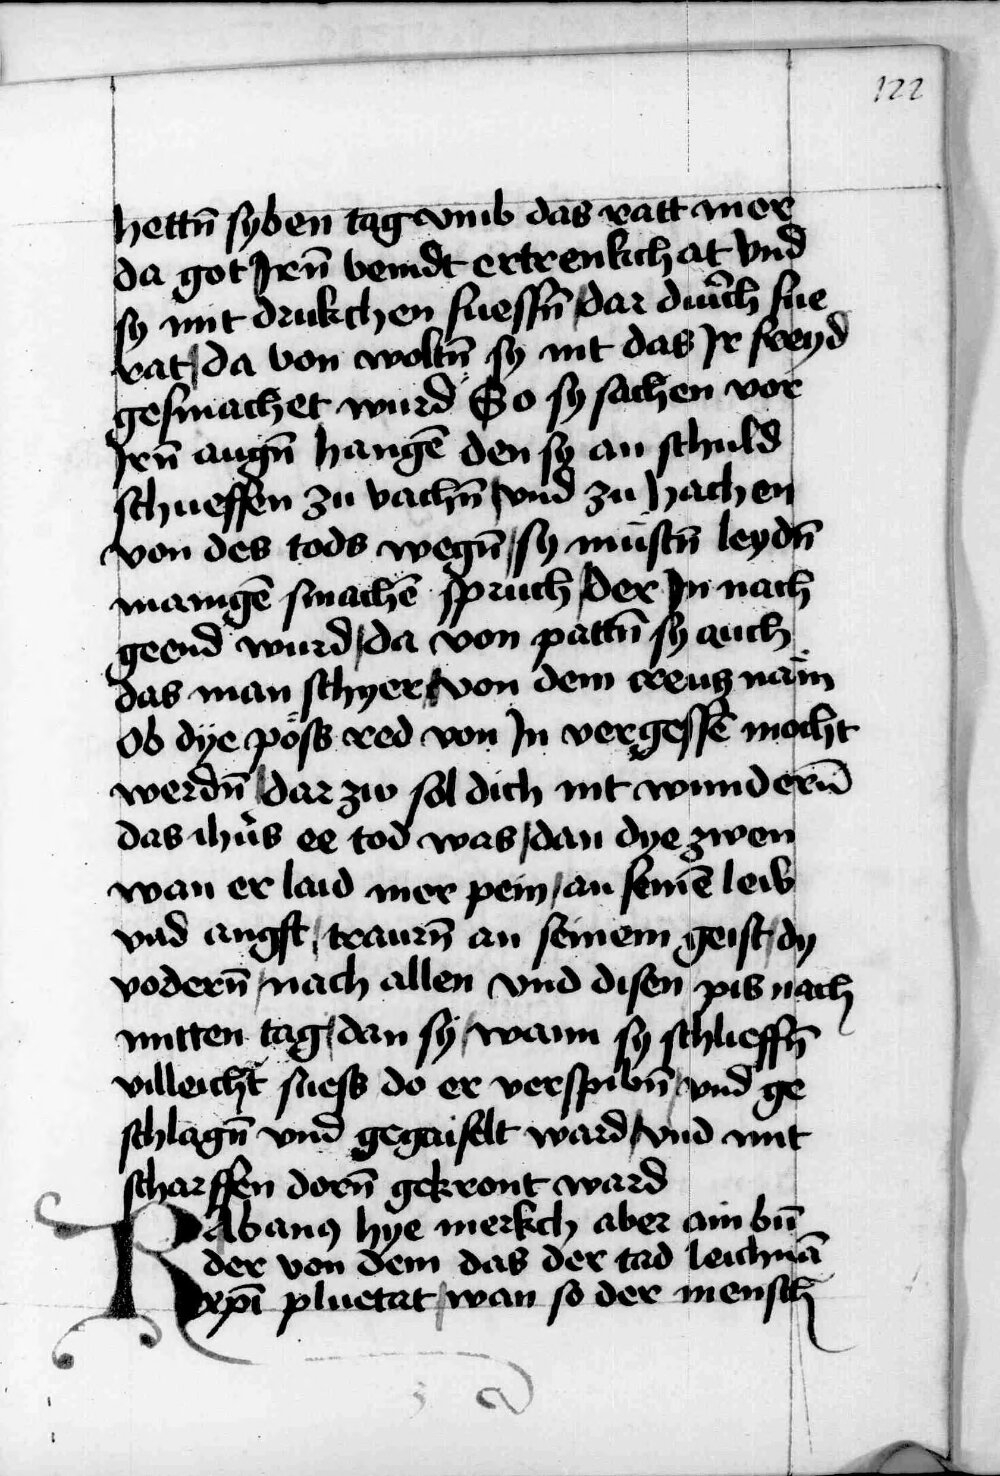 122
hettn̄ syben tag vmb das ratt mer
da got Jrn̄ veindt ertrenkch at vnd
sy mit drukchen fuessn̄ / dar durch fue
rat / da von woltn̄ sy nit das Jr freyd
gesmachet wurd So sy sachen vor
Jrn̄ augn̄ hangē den sy an schuld
schueffen zu vachn̄ / vnd zu hachen
von des tods wegn̄ / sy müstn̄ leydn̄
manigē smachē spruch / der Jn nach
geend wurd / da von pattn̄ sy auch
das man schyer / von dem creutz näm
Ob dÿe pöss red von Jn vergessē mocht
werdn̄ / dar zw sol dich nit wundern̄
das ihūs ee tod was / dan dye zwen
wan er laid mer pein / an seinē leib
vnd angst / traurn̄ an seinem geist / dy
vodern̄ / nach allen vnd disen pis nach
mitten tag / dan sy / wann sy schlieffn̄
villeicht suess do er verspibn̄ / vnd ge
schlagn̄ vnd gegaiselt ward / vnd mit
scharffen dorn̄ gekront ward
Rabanꝯ hye merkch aber ain bū
der von dem das der tad leichnā
xpī pluetat / wan so der mensch